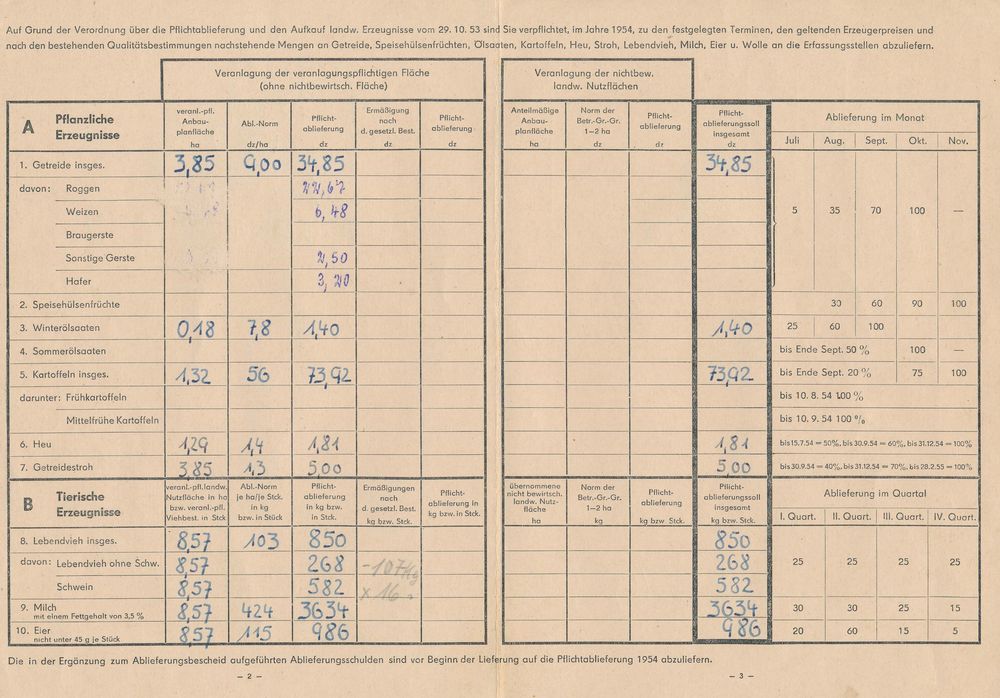 Auf Grund der Verordnung über die Pflichtablieferung und den Aufkauf landw. Erzeugnisse vom 29. 10. 53 sind Sie verpflichtet, im Jahre 1954, zu den festgelegten Terminen, den geltenden Erzeugerpreisen und
nach den bestehenden Qualitätsbestimmungen nachstehende Mengen an Getreide, Speisehülsenfrüchten, Ölsaaten, Kartoffeln, Heu, Stroh, Lebendvieh, Milch, Eier u. Wolle an die Erfassungsstellen abzuliefern.
Veranlagung der veranlagungspflichtigen Fläche
(ohne nichtbewirtsch. Fläche)
Veranlagung der nichtbew.
landw. Nutzflächen
A Pflanzliche
Erzeugnisse
veranl.-pfl.
Anbau-
planfläche
ha
Abl.-Norm
dz/ha
Pflicht-
ablieferung
dz
Ermäßigung
nach
d. gesetzl. Best.
dz
Pflicht-
ablieferung
dz
Anteilmäßige
Anbau-
planfläche
ha
Norm der
Betr.-Gr.-Gr.
1—2 ha
dz
Pflicht-
ablieferung
dz
Pflicht-
ablieferungssoll
insgesamt
dz
Ablieferung im Monat
Juli Aug. Sept. Okt. Nov.
1. Getreide insges. 3,85 9,00 34,85 34,85
davon: Roggen 22,67
Weizen 6,48 5 35 70 100 —
Braugerste
Sonstige Gerste 2,50
Hafer 3,20
2. Speisehülsenfrüchte 30 60 90 100
3. Winterölsaaten 0,18 7,8 1,40 1,40 25 60 100
4. Sommerölsaaten bis Ende Sept. 50 % 100 —
5. Kartoffeln insges. 1,32 56 73,92 73,92 bis Ende Sept. 20 % 75 100
darunter: Frühkartoffeln bis 10. 8. 54 100 %
Mittelfrühe Kartoffeln bis 10. 9. 54 100 %
6. Heu 1,29 1,4 1,81 1,81 bis 15.7.54 = 50%, bis 30.9.54 = 60%, bis 31.12.54 = 100%
7. Getreidestroh 3,85 1,3 5,00 5,00 bis 30.9.54 = 40%, bis 31.12.54 = 70%, bis 28.2.55 = 100%
B Tierische
Erzeugnisse
veranl.-pfl. landw.
Nutzfläche in ha
bzw. veranl.-pfl.
Viehbest. in Stck
Abl.-Norm
je ha/je Stck.
in kg
bzw. in Stück
Pflicht-
ablieferung
in kg bzw.
in Stck.
Ermäßigungen
nach
d. gesetzl. Best.
kg bzw. Stck.
Pflicht-
ablieferung in
kg bzw. in Stck.
übernommene
nicht bewirtsch.
landw. Nutz-
fläche
ha
Norm der
Betr.-Gr.-Gr.
1—2 ha
kg
Pflicht-
ablieferung
kg bzw. Stck.
Pflicht-
ablieferungssoll
insgesamt
kg bzw. Stck.
Ablieferung im Quartal
I. Quart. II. Quart. III. Quart. IV. Quart.
8. Lebendvieh insges. 8,57 103 850 850
davon: Lebendvieh ohne Schw. 8,57 268 -107 Kg 268 25 25 25 25
Schwein 8,57 582 582
9. Milch 8,57 424 3634 3634 30 30 25 15
mit einem Fettgehalt von 3,5 %
10. Eier 8,57 115 986 986 20 60 15 5
nicht unter 45 g je Stück
Die in der Ergänzung zum Ablieferungsbescheid aufgeführten Ablieferungsschulden sind vor Beginn der Lieferung auf die Pflichtablieferung 1954 abzuliefern.
— 2 — — 3 —